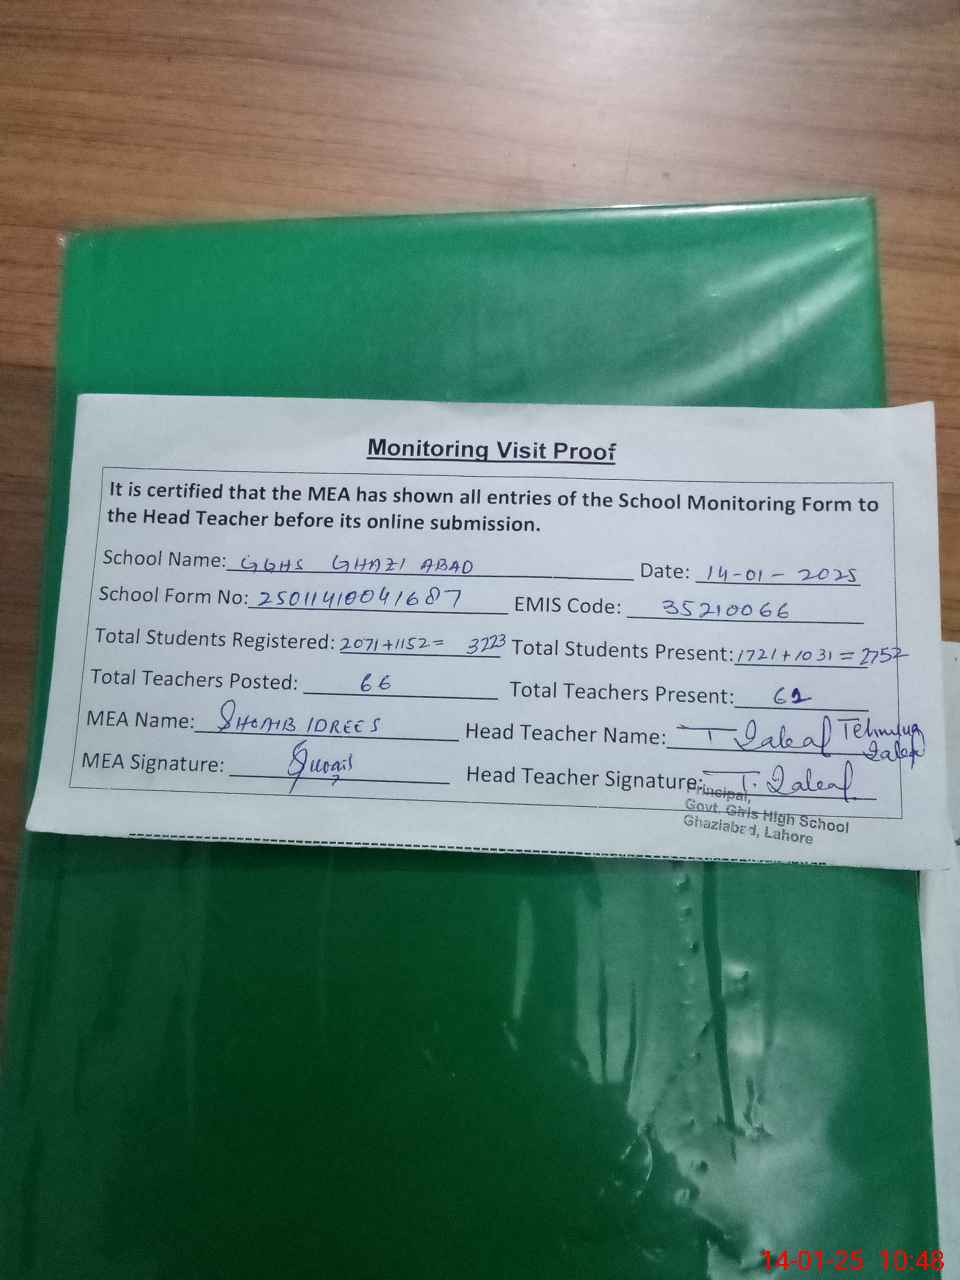 Monitoring Visit Proof
It is certified that the MEA has shown all entries of the School Monitoring Form to
the Head Teacher before its online submission.
School Name: GGHS GHAZI ABAD Date: 14-01-2025
School Form No: 25011410041687 EMIS Code: 35210066
Total Students Registered: 2071+1152= 3223 Total Students Present: 1721+1031=2752
Total Teachers Posted: 66 Total Teachers Present: 62
MEA Name: SHOAIB IDREES Head Teacher Name: T
MEA Signature: Shoaib Head Teacher Signature: T.
Principal,
Govt. Girls High School
Ghaziabad, Lahore
14-01-25 10:48